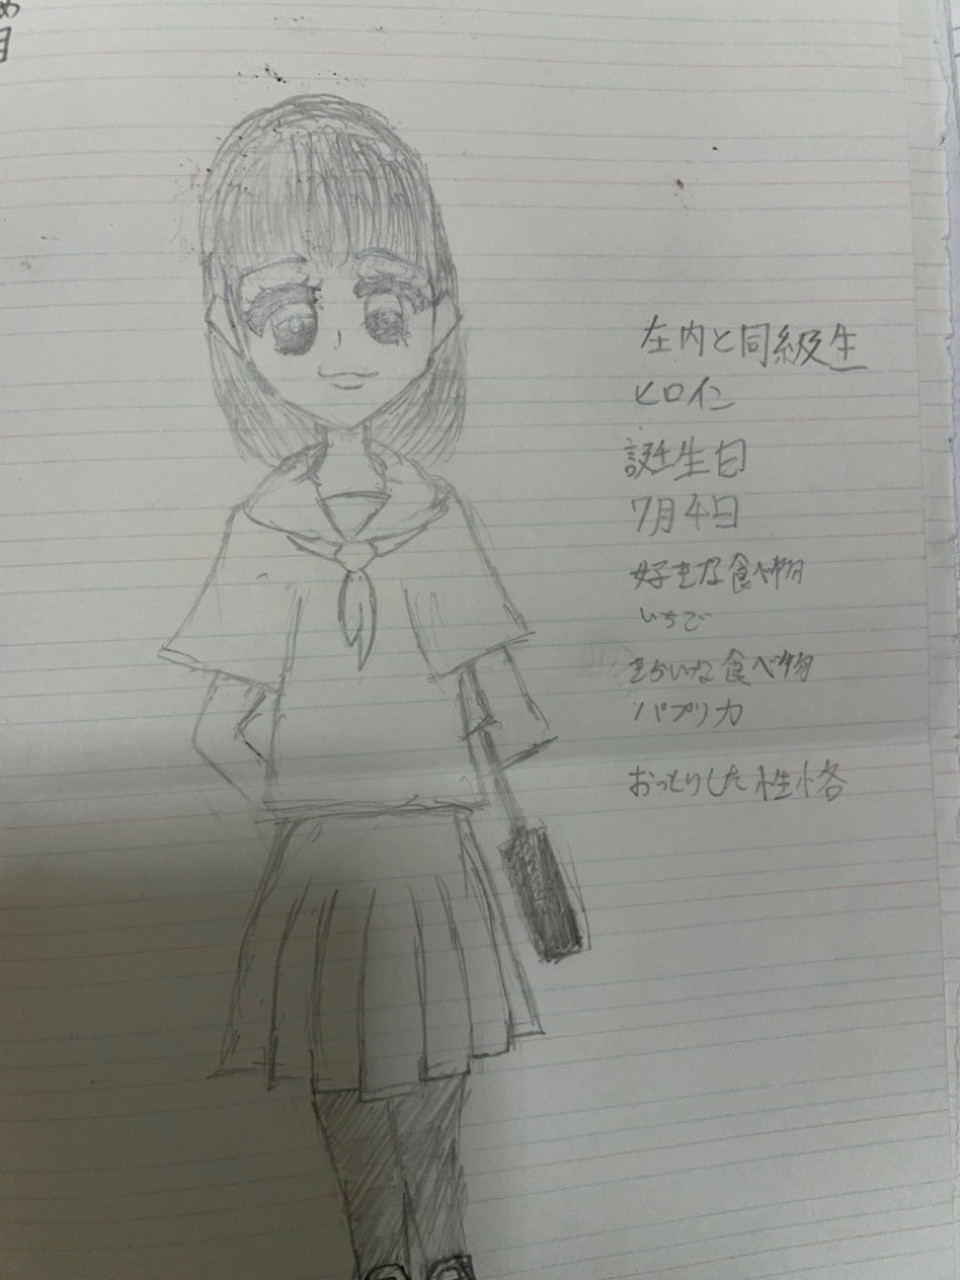 月
在内と同級生
ヒロイン
誕生日
7月4日
好きな食べ物
いちご
きらいな食べ物
パプリカ
おっとりした性格